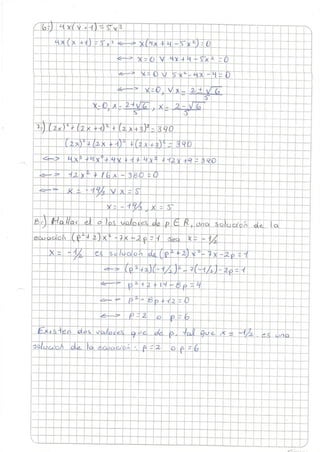 6.) 4x(x+1) = 5x³
4x(x+1) = 5x³ <--> x(4x+4-5x²) = 0
<--> x=0 ∨ 4x+4-5x² = 0
<--> x=0 ∨ 5x²-4x-4 = 0
<--> x=0, ∨ x = 2±√6/5
x=0, x = 2+√6/5, x = 2-√6/5
7.) (2x)²+(2x+1)²+(2x+3)² = 390
(2x)²+(2x+1)²+(2x+3)² = 390
<--> 4x²+4x²+4x+1+4x²+12x+9 = 390
<--> 12x²+16x-380 = 0
<--> x = -19/3 ∨ x = 5
x = -19/3, x = 5
8.) Hallar el o los valores de p ∈ R, una solución de la
ecuación (p²+2)x²-7x-2p=1 sea x = -1/2
x = -1/2 es solución de (p²+2)x²-7x-2p=1
<--> (p²+2)(-1/2)²-7(-1/2)-2p=1
<--> p²+2+14-8p=4
<--> p²-8p+12=0
<--> p=2 o p=6
Existen dos valores que de p. tal que x = -1/2 es una
solución de la ecuación: p=2 o p=6